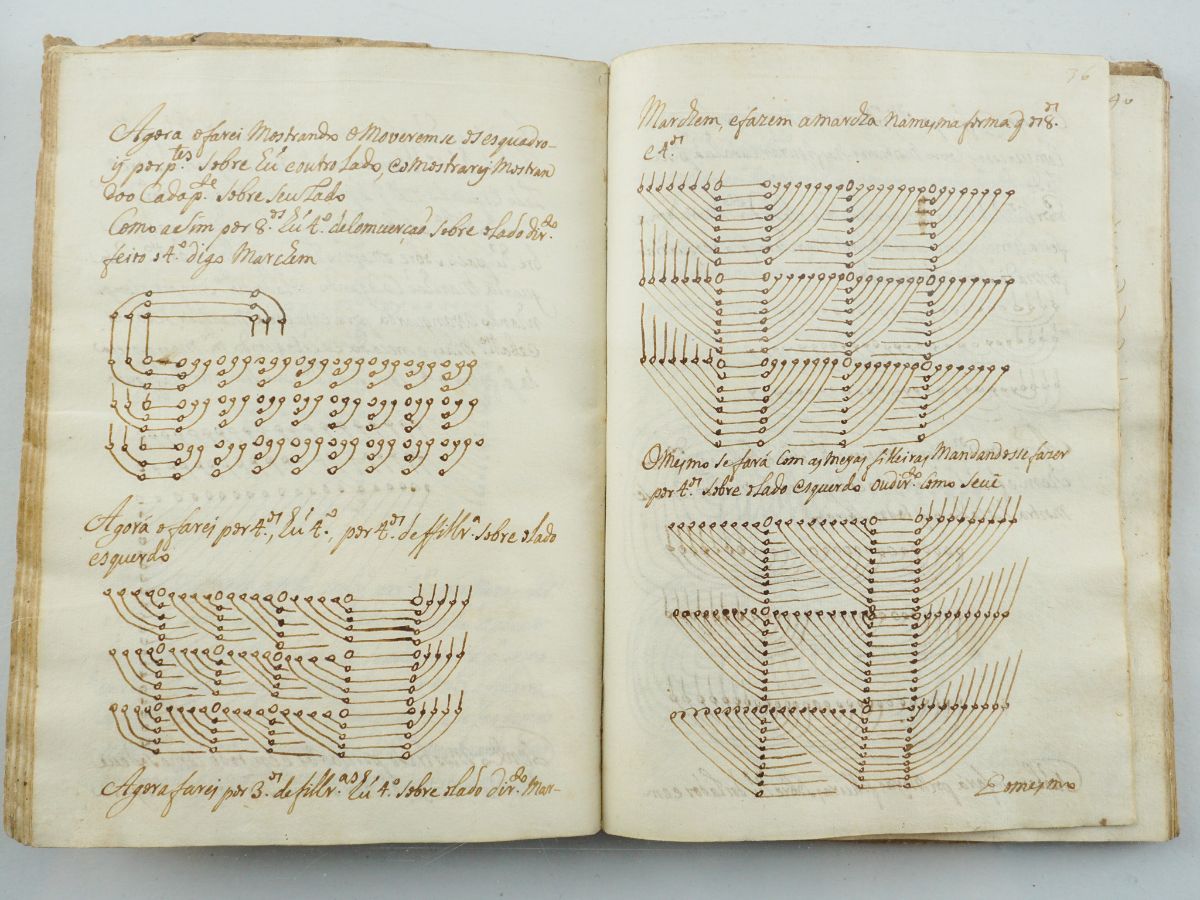 Agora o farei Mostrando o Moveremse os esquadro-
ỹ por p.tes sobre hũ e outro Lado, e o Mostrarej Mostran
doo Cada p.te sobre seu Lado
Como aesim por 8.os hũ 4.o de Comverçaõ sobre o lado dir.to
feito o 4.o digo Marchem
Agora o farei por 4.os, hũ 4.o, por 4.os de ffillr.a sobre o lado
esquerdo
Agora farej por 3.os de fillr.as hũ 4.o sobre o lado dir.to Mar-
36
Marchem, e fazem a marcha na mesma forma q̃ os 8.os
e 4.os
O Mesmo se fará Com as meyas filleiras Mandandosse fazer
por 4.os sobre o lado esquerdo ou dir.to Como se ve
E o mesmo